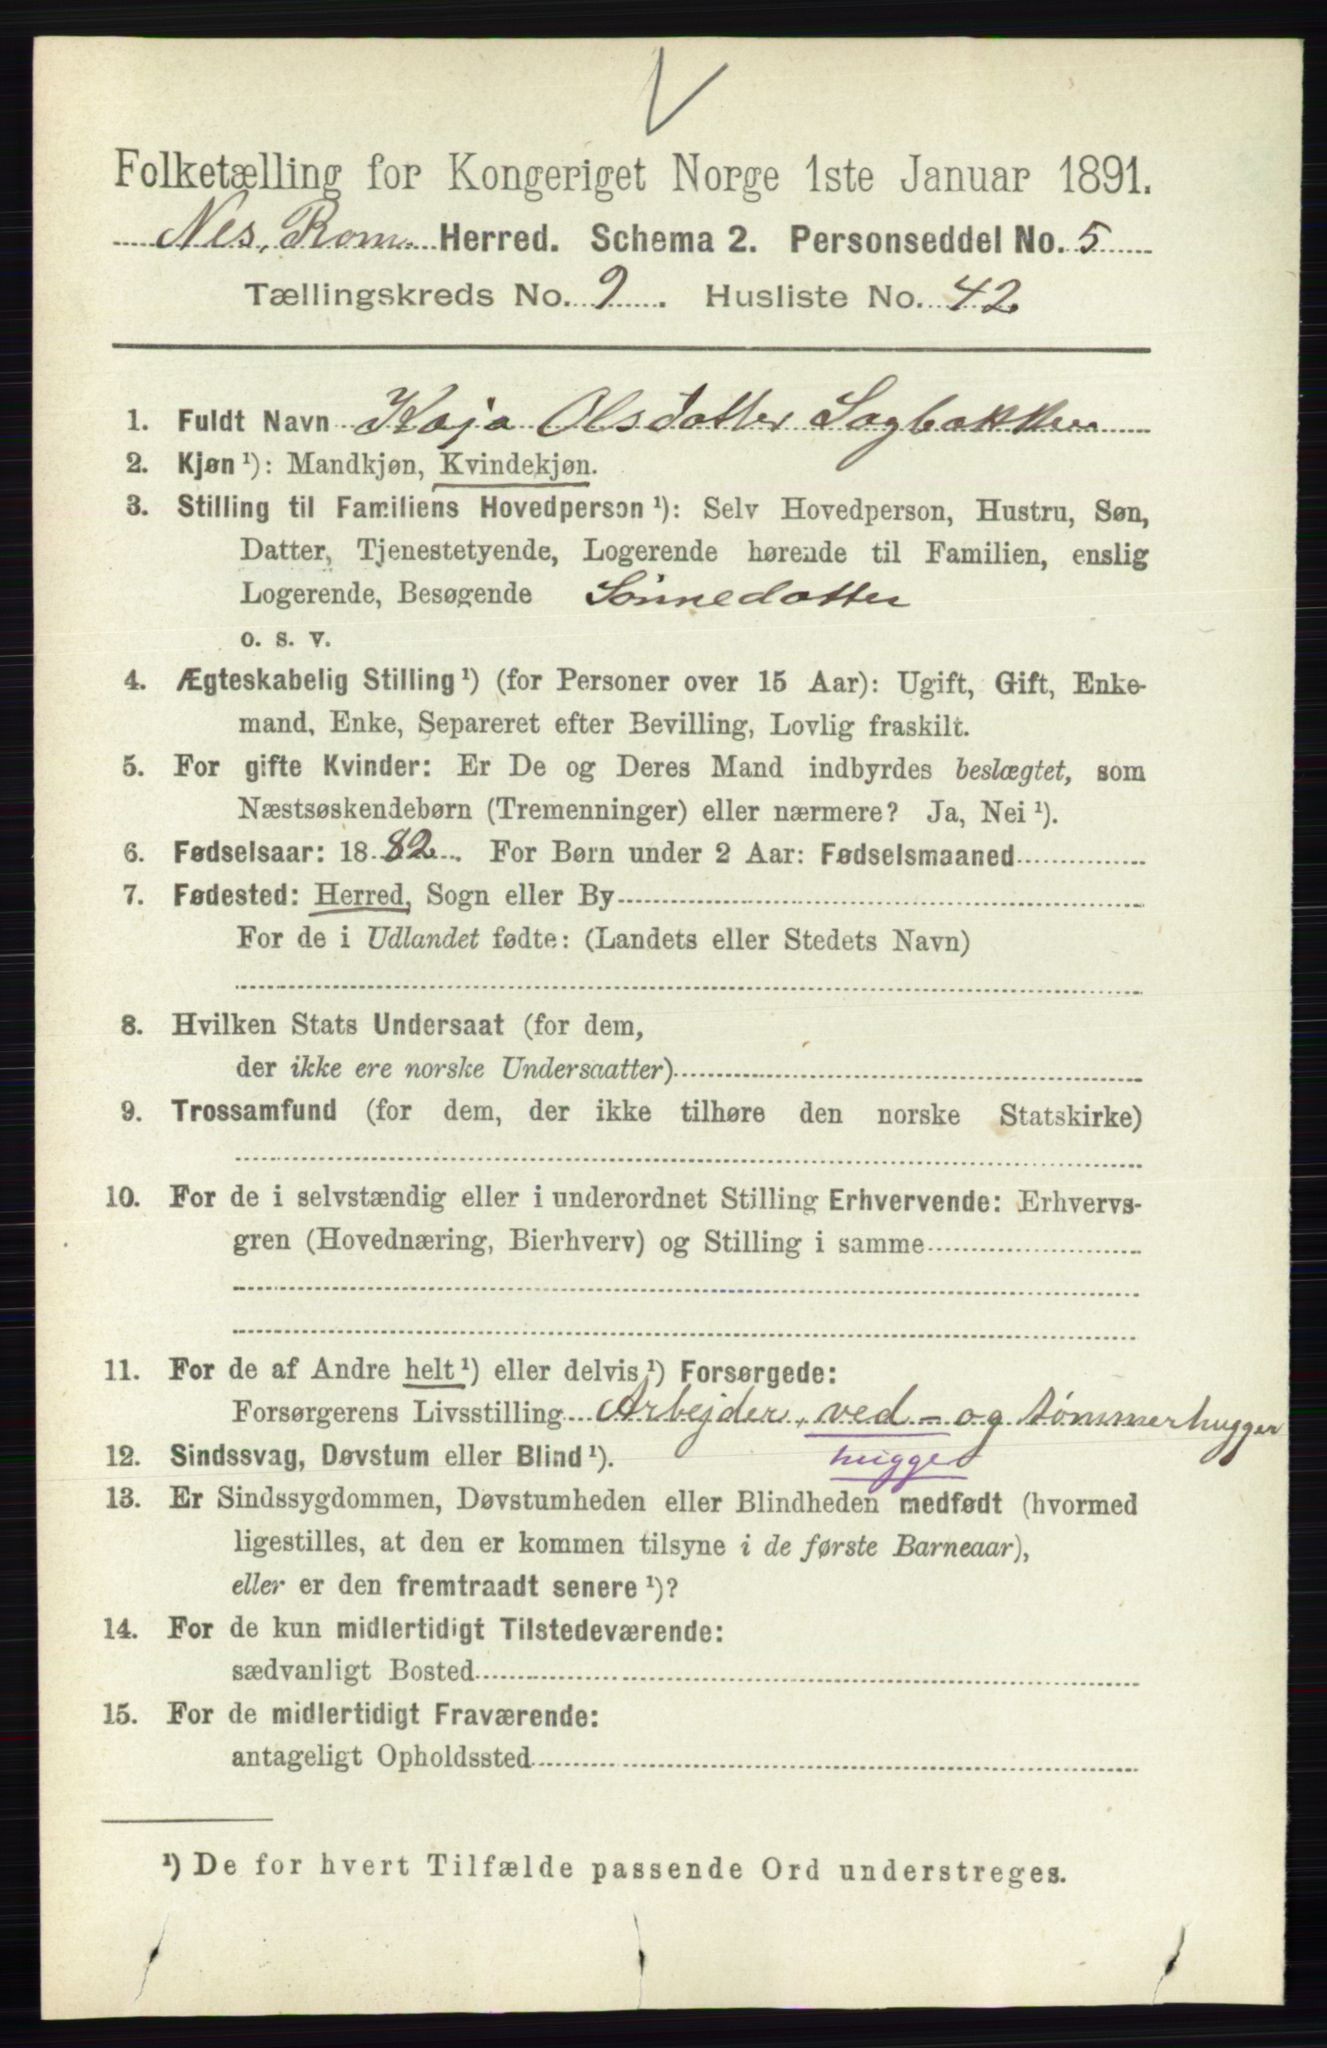 Folketælling for Kongeriget Norge 1ste Januar 1891.
Nes, Rom. Herred. Schema 2. Personseddel No. 5
Tællingskreds No. 9. Husliste No. 42
1. Fuldt Navn Kaja Olsdatter Sagbakken
2. Kjøn ¹): Mandkjøn, Kvindekjøn.
3. Stilling til Familiens Hovedperson ¹): Selv Hovedperson, Hustru, Søn,
Datter, Tjenestetyende, Logerende hørende til Familien, enslig
Logerende, Besøgende Sönnedatter
o. s. v.
4. Ægteskabelig Stilling ¹) (for Personer over 15 Aar): Ugift, Gift, Enke-
mand, Enke, Separeret efter Bevilling, Lovlig fraskilt.
5. For gifte Kvinder: Er De og Deres Mand indbyrdes beslægtet, som
Næstsøskendebørn (Tremenninger) eller nærmere? Ja, Nei ¹).
6. Fødselsaar: 1882. For Børn under 2 Aar: Fødselsmaaned
7. Fødested: Herred, Sogn eller By
For de i Udlandet fødte: (Landets eller Stedets Navn)
8. Hvilken Stats Undersaat (for dem,
der ikke ere norske Undersaatter)
9. Trossamfund (for dem, der ikke tilhøre den norske Statskirke)
10. For de i selvstændig eller i underordnet Stilling Erhvervende: Erhvervs-
gren (Hovednæring, Bierhverv) og Stilling i samme
11. For de af Andre helt ¹) eller delvis ¹) Forsørgede:
Forsørgerens Livsstilling Arbejder, ved- og tømmerhugger
12. Sindssvag, Døvstum eller Blind ¹). hugge
13. Er Sindssygdommen, Døvstumheden eller Blindheden medfødt (hvormed
ligestilles, at den er kommen tilsyne i de første Barneaar),
eller er den fremtraadt senere ¹)?
14. For de kun midlertidigt Tilstedeværende:
sædvanligt Bosted
15. For de midlertidigt Fraværende:
antageligt Opholdssted
¹) De for hvert Tilfælde passende Ord understreges.